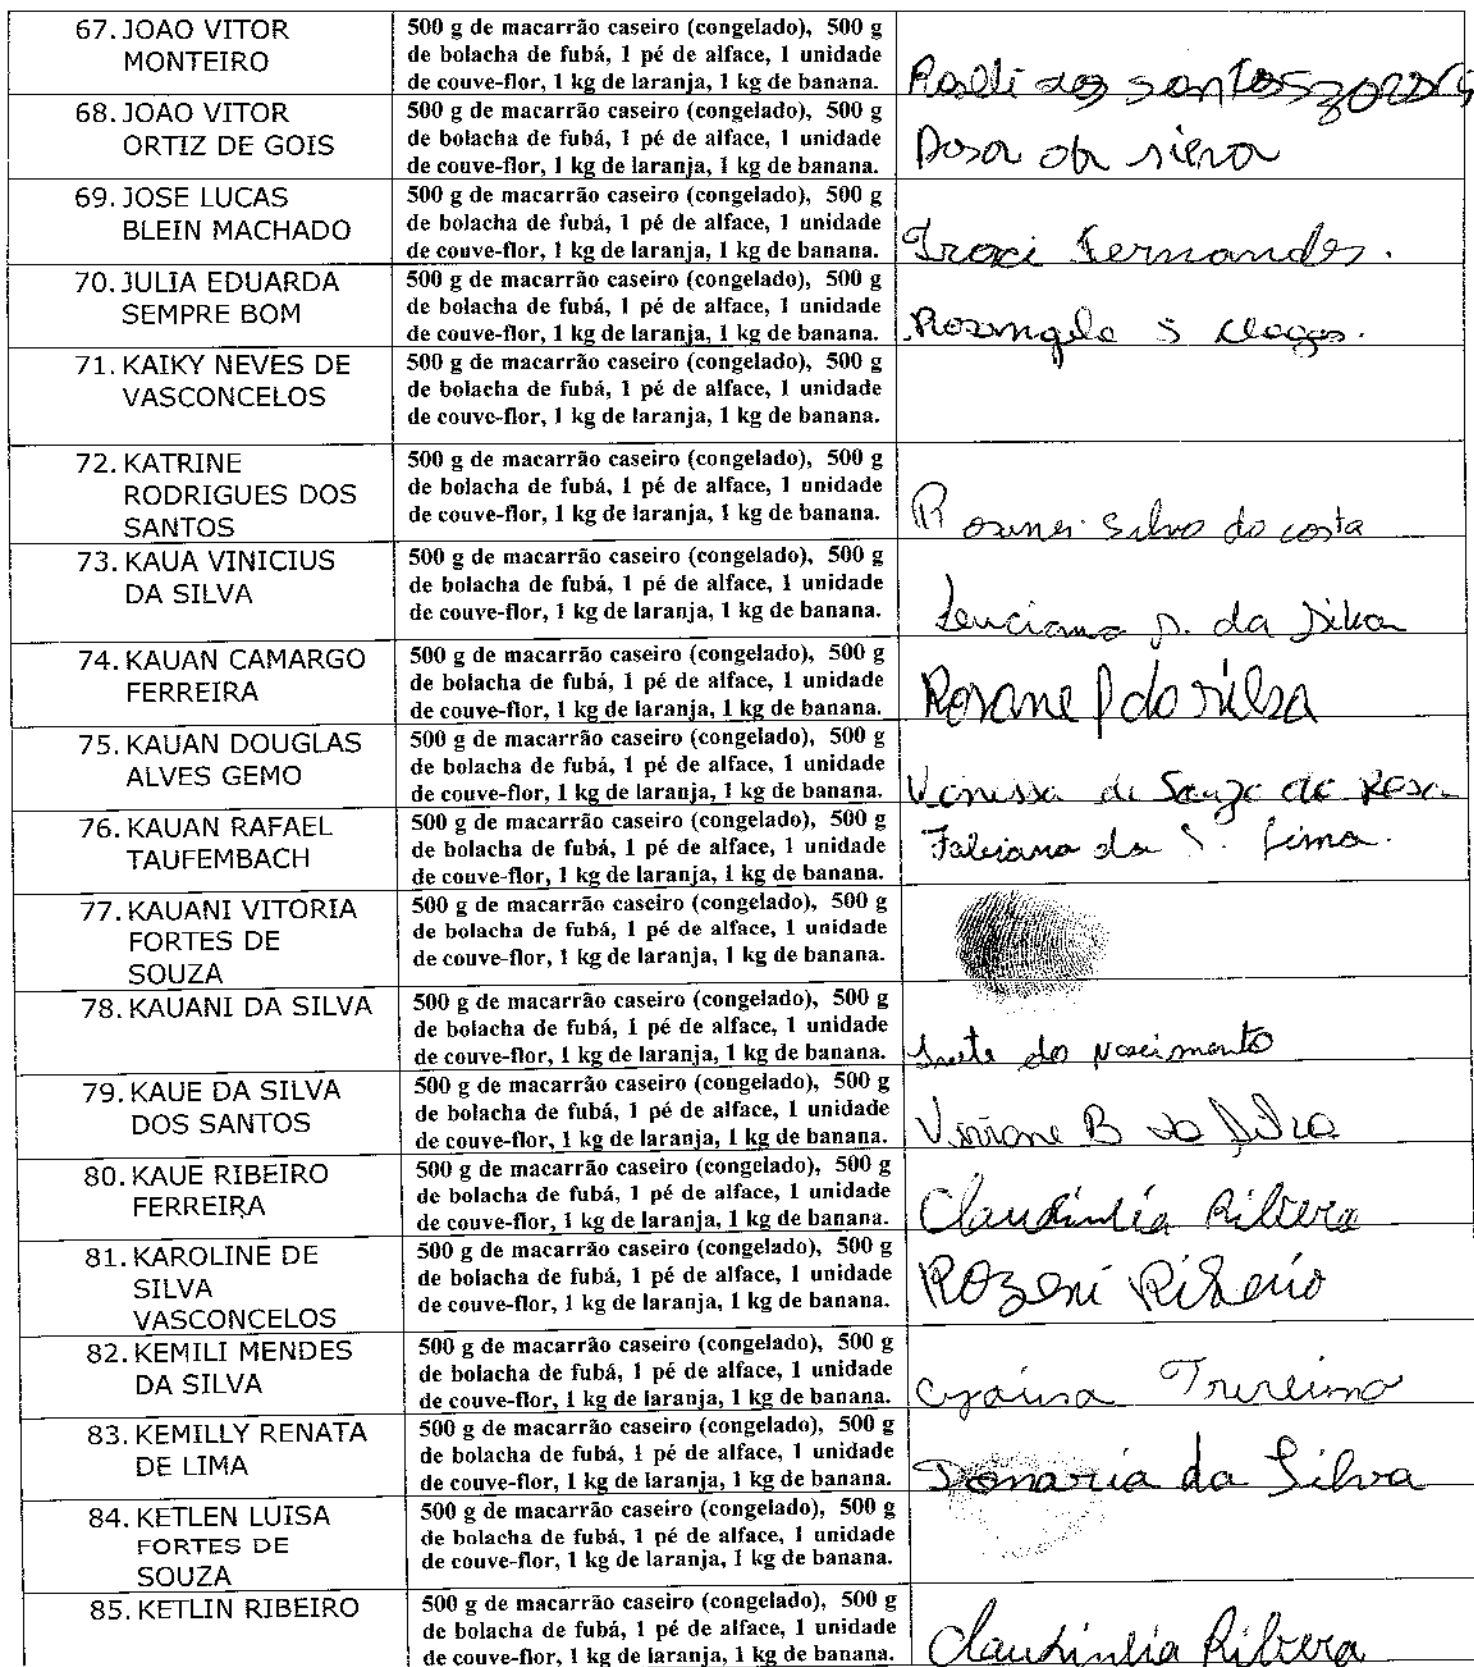 67. JOAO VITOR
MONTEIRO
500 g de macarrão caseiro (congelado), 500 g
de bolacha de fubá, 1 pé de alface, 1 unidade
de couve-flor, 1 kg de laranja, 1 kg de banana.
dos santos
68. JOAO VITOR
ORTIZ DE GOIS
500 g de macarrão caseiro (congelado), 500 g
de bolacha de fubá, 1 pé de alface, 1 unidade
de couve-flor, 1 kg de laranja, 1 kg de banana.
69. JOSE LUCAS
BLEIN MACHADO
500 g de macarrão caseiro (congelado), 500 g
de bolacha de fubá, 1 pé de alface, 1 unidade
de couve-flor, 1 kg de laranja, 1 kg de banana.
Iraci Fernandes.
70. JULIA EDUARDA
SEMPRE BOM
500 g de macarrão caseiro (congelado), 500 g
de bolacha de fubá, 1 pé de alface, 1 unidade
de couve-flor, 1 kg de laranja, 1 kg de banana.
Rosangela S
71. KAIKY NEVES DE
VASCONCELOS
500 g de macarrão caseiro (congelado), 500 g
de bolacha de fubá, 1 pé de alface, 1 unidade
de couve-flor, 1 kg de laranja, 1 kg de banana.
72. KATRINE
RODRIGUES DOS
SANTOS
500 g de macarrão caseiro (congelado), 500 g
de bolacha de fubá, 1 pé de alface, 1 unidade
de couve-flor, 1 kg de laranja, 1 kg de banana.
Silva da costa
73. KAUA VINICIUS
DA SILVA
500 g de macarrão caseiro (congelado), 500 g
de bolacha de fubá, 1 pé de alface, 1 unidade
de couve-flor, 1 kg de laranja, 1 kg de banana.
da Silva
74. KAUAN CAMARGO
FERREIRA
500 g de macarrão caseiro (congelado), 500 g
de bolacha de fubá, 1 pé de alface, 1 unidade
de couve-flor, 1 kg de laranja, 1 kg de banana.
Rosane P da silva
75. KAUAN DOUGLAS
ALVES GEMO
500 g de macarrão caseiro (congelado), 500 g
de bolacha de fubá, 1 pé de alface, 1 unidade
de couve-flor, 1 kg de laranja, 1 kg de banana.
Vanessa de Souza da Rosa
76. KAUAN RAFAEL
TAUFEMBACH
500 g de macarrão caseiro (congelado), 500 g
de bolacha de fubá, 1 pé de alface, 1 unidade
de couve-flor, 1 kg de laranja, 1 kg de banana.
Fabiana da S. Lima.
77. KAUANI VITORIA
FORTES DE
SOUZA
500 g de macarrão caseiro (congelado), 500 g
de bolacha de fubá, 1 pé de alface, 1 unidade
de couve-flor, 1 kg de laranja, 1 kg de banana.
78. KAUANI DA SILVA
500 g de macarrão caseiro (congelado), 500 g
de bolacha de fubá, 1 pé de alface, 1 unidade
de couve-flor, 1 kg de laranja, 1 kg de banana.
do Nascimento
79. KAUE DA SILVA
DOS SANTOS
500 g de macarrão caseiro (congelado), 500 g
de bolacha de fubá, 1 pé de alface, 1 unidade
de couve-flor, 1 kg de laranja, 1 kg de banana.
Viviane B da Silva
80. KAUE RIBEIRO
FERREIRA
500 g de macarrão caseiro (congelado), 500 g
de bolacha de fubá, 1 pé de alface, 1 unidade
de couve-flor, 1 kg de laranja, 1 kg de banana.
81. KAROLINE DE
SILVA
VASCONCELOS
500 g de macarrão caseiro (congelado), 500 g
de bolacha de fubá, 1 pé de alface, 1 unidade
de couve-flor, 1 kg de laranja, 1 kg de banana.
ROZeni Ribeiro
82. KEMILI MENDES
DA SILVA
500 g de macarrão caseiro (congelado), 500 g
de bolacha de fubá, 1 pé de alface, 1 unidade
de couve-flor, 1 kg de laranja, 1 kg de banana.
83. KEMILLY RENATA
DE LIMA
500 g de macarrão caseiro (congelado), 500 g
de bolacha de fubá, 1 pé de alface, 1 unidade
de couve-flor, 1 kg de laranja, 1 kg de banana.
da Silva
84. KETLEN LUISA
FORTES DE
SOUZA
500 g de macarrão caseiro (congelado), 500 g
de bolacha de fubá, 1 pé de alface, 1 unidade
de couve-flor, 1 kg de laranja, 1 kg de banana.
85. KETLIN RIBEIRO
500 g de macarrão caseiro (congelado), 500 g
de bolacha de fubá, 1 pé de alface, 1 unidade
de couve-flor, 1 kg de laranja, 1 kg de banana.